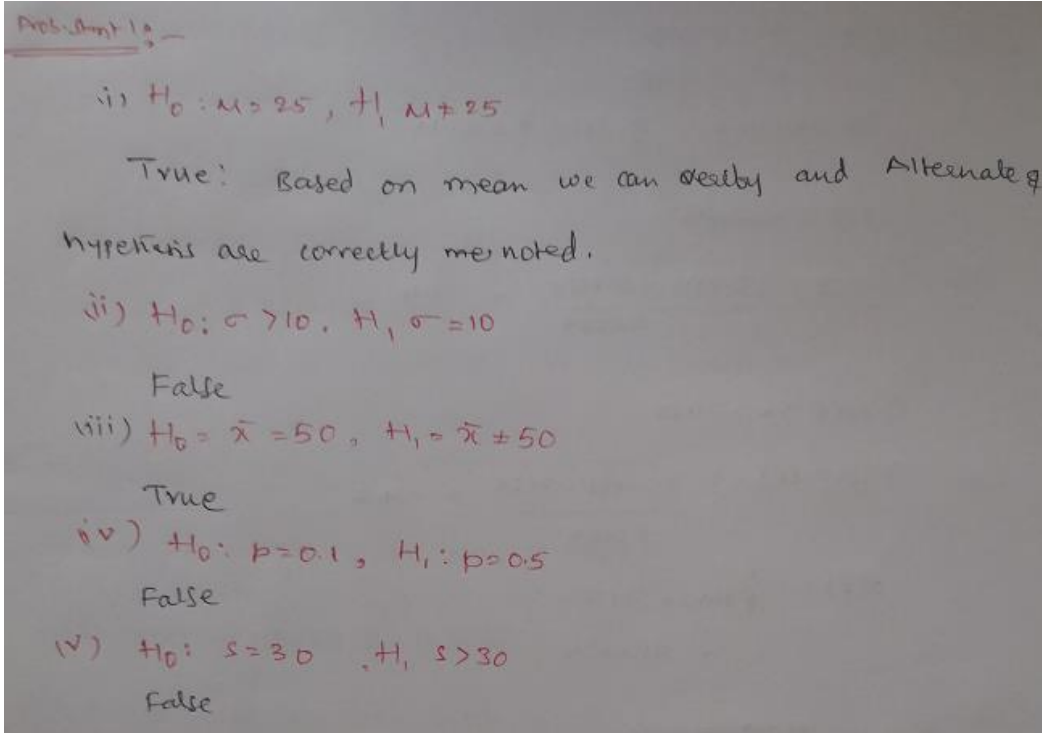 i) H₀ : μ = 25 , H₁ μ ≠ 25
True: Based on mean we can and Alternate
are correctly noted.
ii) H₀: σ > 10. H₁ σ = 10
False
iii) H₀ = x̄ = 50, H₁ = x̄ ≠ 50
True
iv) H₀: p = 0.1, H₁: p = 0.5
False
(v) H₀: s = 30 , H₁ s > 30
False